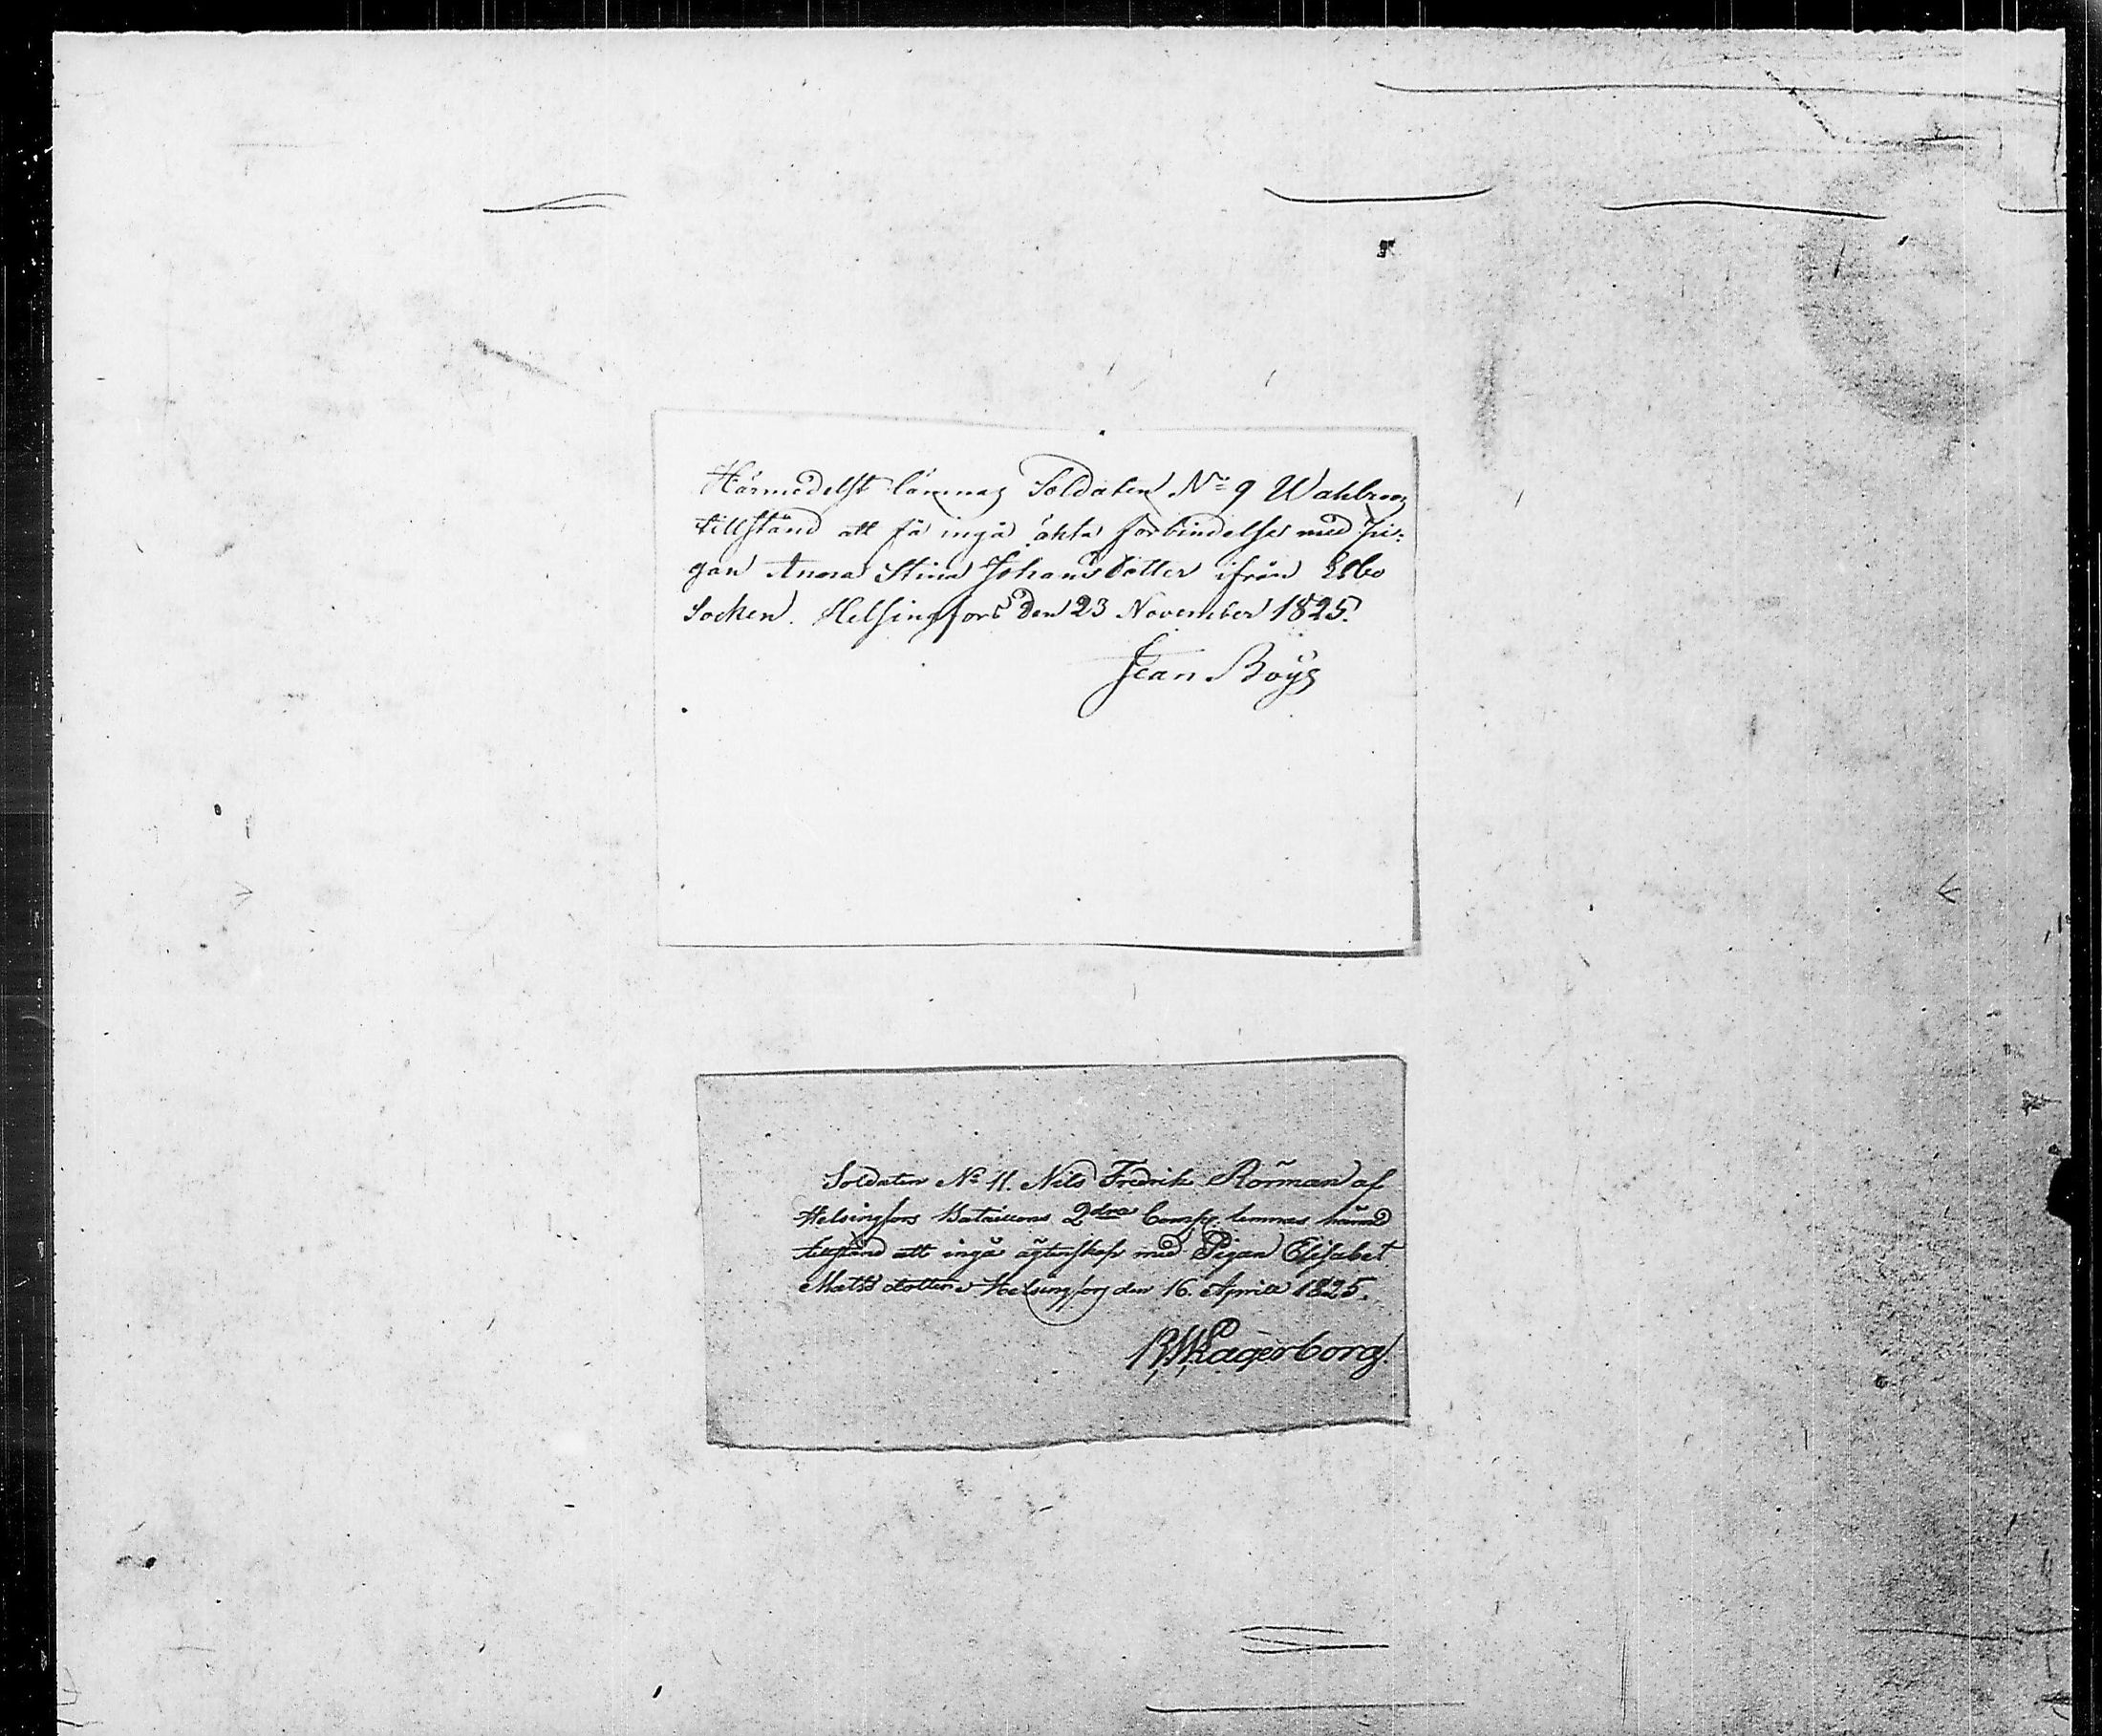 Härmedelst lämnas Soldaten No 9 Wahlroos
tillstånd att få ingå äkta förbindelse med Pi-
gan Anna Stina Johansdotter ifrån Esbo
Socken. Helsingfors den 23 November 1825.
Jean Boÿs
Soldaten No 11. Nils Fredrik Rörman af
Helsingfors Bataillons 2dra Comp. lemnas härmed
tillstånd att ingå ägtenskap med Pigan Elisabet
Matts dotter. Helsingfors den 16. Aprill 1825.
Lagerborg.